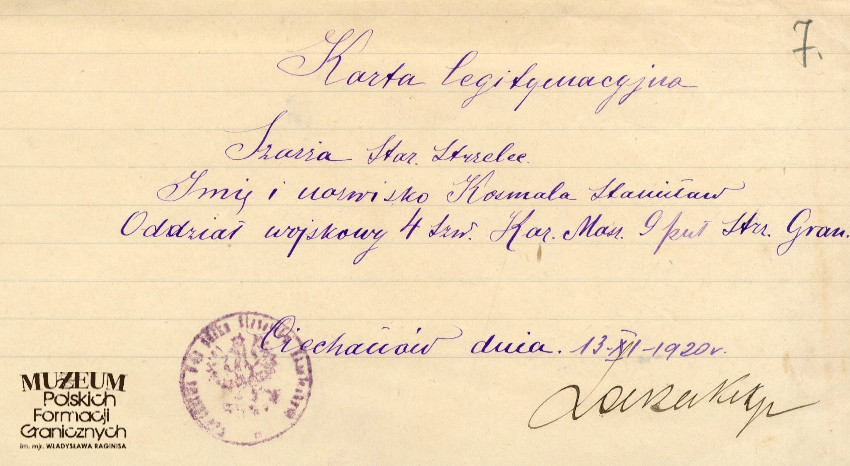 7.
Karta legitymacyjna
Szarża Star. Strzelec.
Imię i nazwisko Kosmala Stanisław
Oddział wojskowy 4 szw. Kar. Masz. 9 puł Strz. Gran.
Ciechanów dnia. 13-XII-1920 r.
MUZEUM
Polskich
Formacji
Granicznych
im. mjr. WŁADYSŁAWA RAGINISA